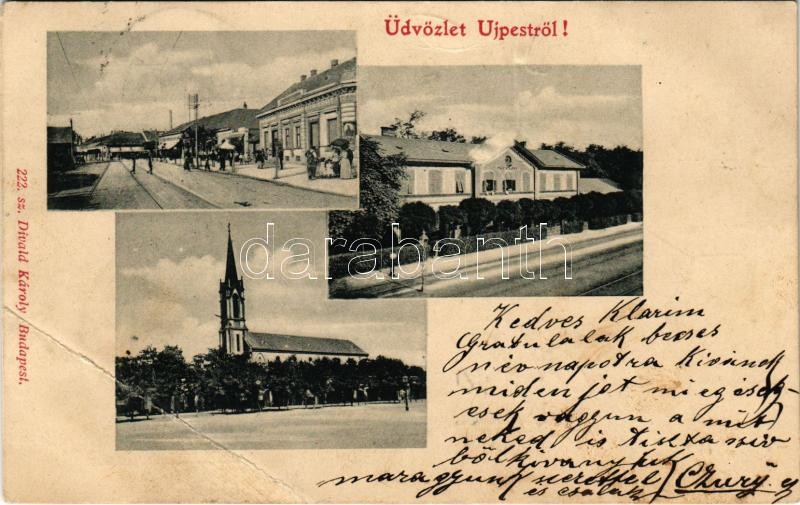 Üdvözlet Ujpestről!
222. sz. Divald Károly Budapest.
darabanth.com
Kedves Klarim
Gratulalak becses
név napotra kivánok
miden jot mi egések-
csek vagyun a mit
neked is tiszta sziv
bölkivanyuk
maragyunk szerettel
és csalak Czury